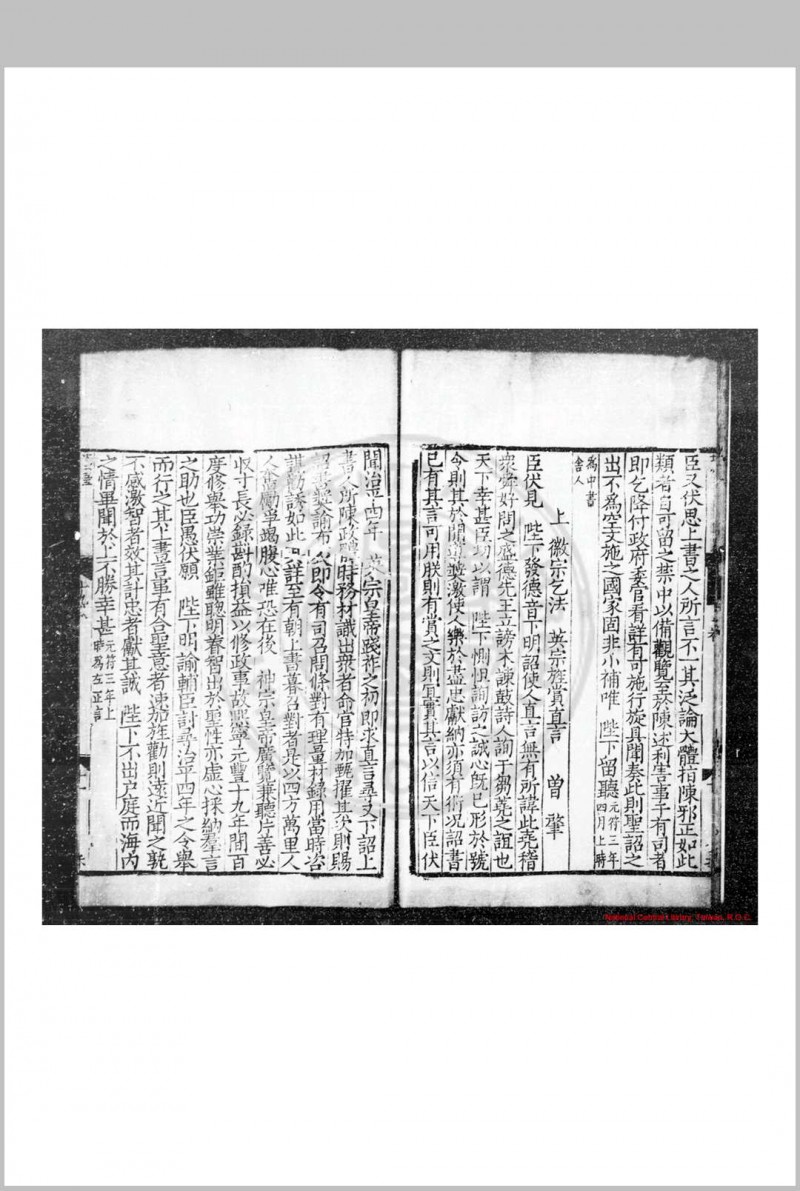 臣又伏思上書之人所言不一其泛論大體指陳邪正如此
類者自可留之禁中以備觀覽至於陳述利害事于有司者
即乞降付政府委官看詳有可施行旋具聞奏此則聖詔之
出不為空文施之國家固非小補唯 陛下留聽元符三年四月上時
為中書舍人
上 徽宗乞法 英宗旌賞直言 曾 肇
臣伏見 陛下發德音下明詔使人直言無有所諱此堯稽
衆舜好問之盛德先王立謗木諫鼓詩人詢于芻蕘之誼也
天下幸甚臣切以謂 陛下惻怛詢訪之誠心旣已形於號
令則其於開導奬激使人樂於盡忠獻納亦須有術况詔書
已有其言可用朕則有賞之文則冝實其言以信天下臣伏
聞治平四年 英宗皇帝踐祚之初即求直言尋又下詔上
書人所陳政體時務材識出衆者命官特加甄擢其次則賜
詔書奬諭布 即令有司召問條對有理量材錄用當時咨
諏勸誘如此 詳至有朝上書暮召對者是以四方萬里人
人奮勵爭竭腹心唯恐在後 神宗皇帝廣覽兼聽片善必
収寸長必録斟酌損益以修政事故熈寧元豐十九年間百
度修舉功崇業鉅雖聦明睿智出於聖性亦虛心採納羣言
之助也臣愚伏願 陛下明諭輔臣討尋治平四年之令舉
而行之其上書言事有合聖意者速加旌勸則遠近聞之孰
不感激智者效其計忠者獻其誠 陛下不出户庭而海内
之情畢聞於上不勝幸甚元符三年上時為左正言
National Central Library, Taiwan, R.O.C.